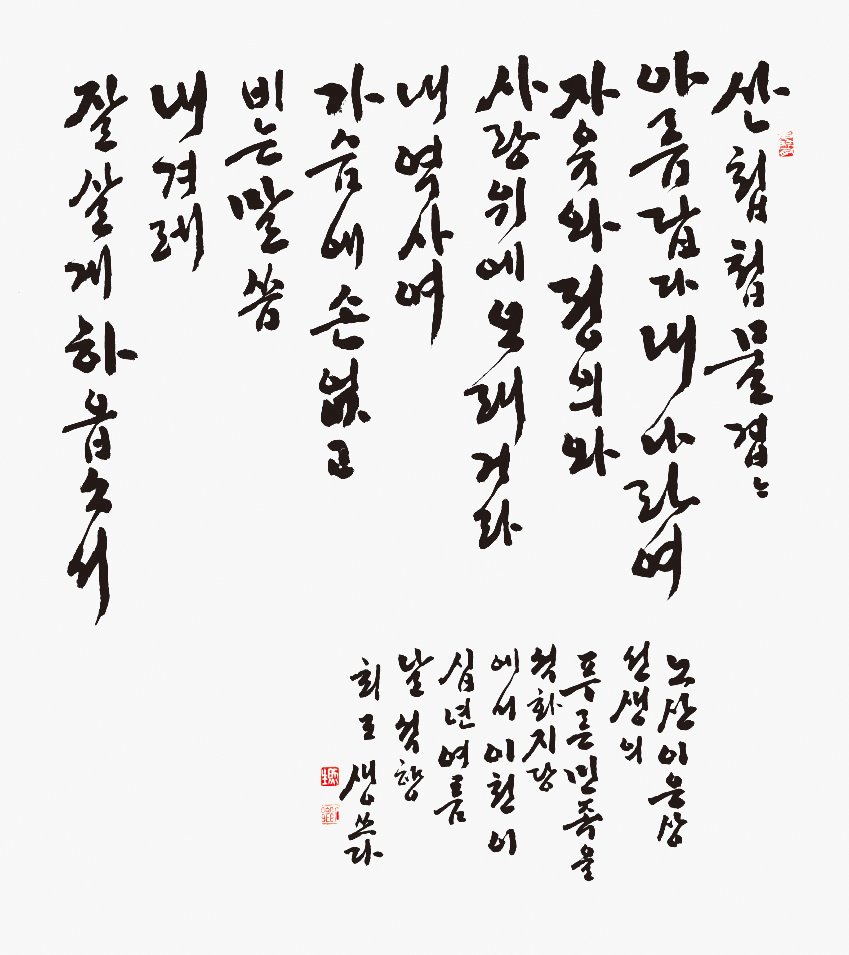 산첩첩물겹〻
아름답다내나라여
자유와정의와
사랑위에오래거라
내역사여
가슴에손얹고
비는말씀
내겨레
잘살게하옵소서
노산이은상
선생의
푸른민족을
석화지당
에서이천이
십년여름
날석향
쓰다